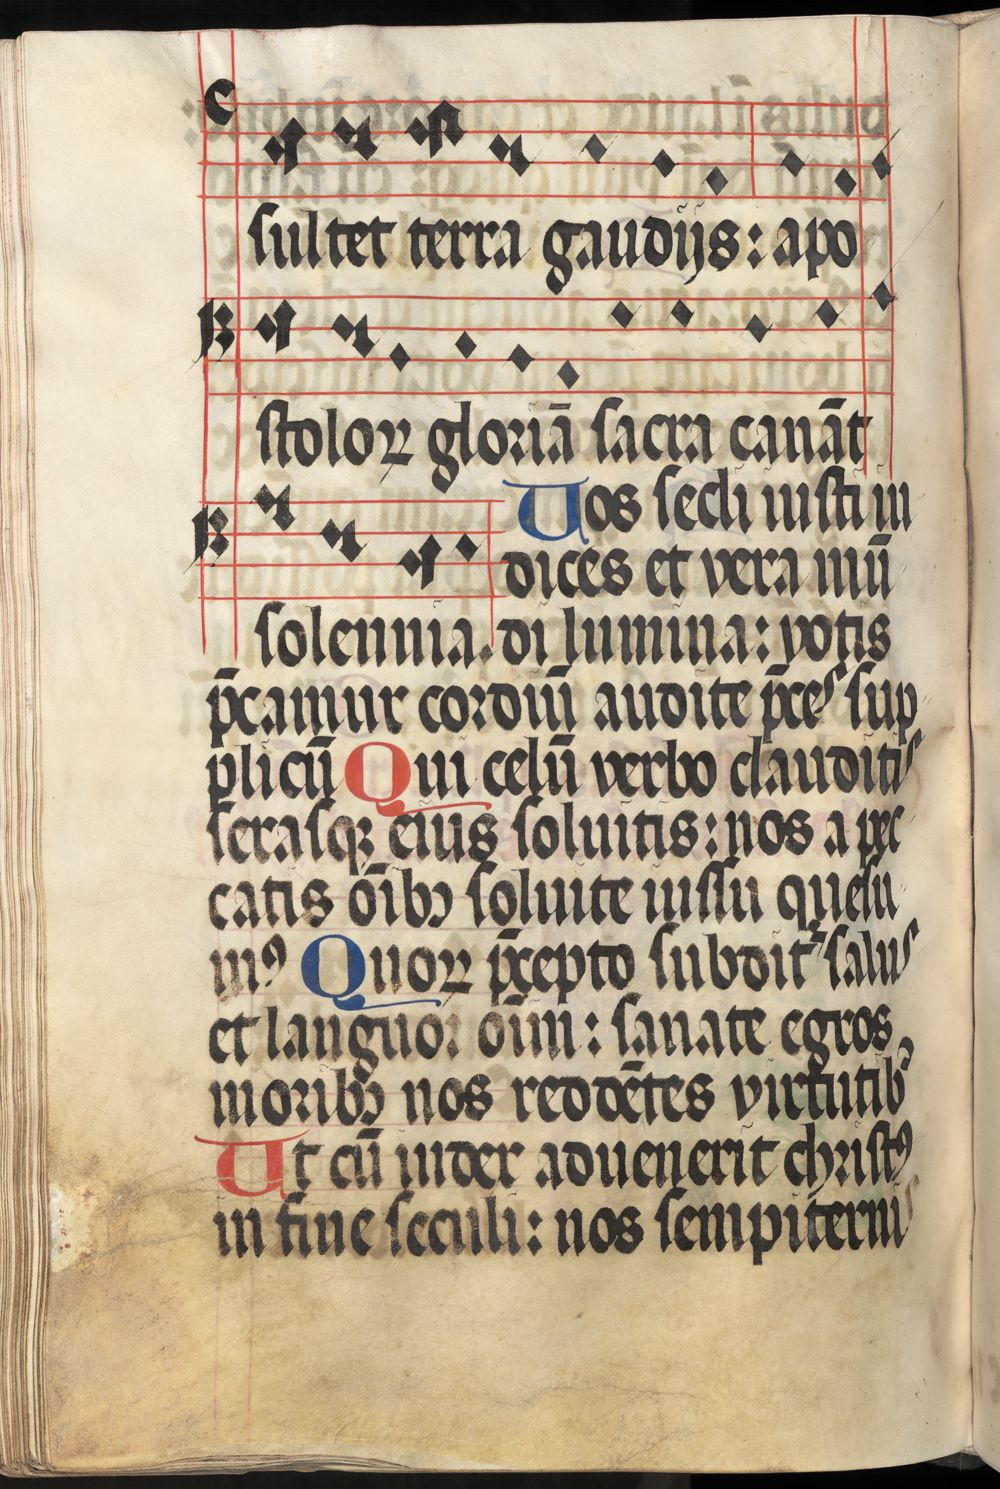 sultet terra gaudijs: apo
stoloꝝ gloriā sacra canāt
solennia.
Uos secli iusti iu
dices et vera mū
di lumina: votis
p̄camur cordiū audite p̄ces sup
plicū Qui celū verbo clauditis
serasqꝫ eius soluitis: nos a pec
catis oībꝫ soluite iussu quesu
mꝰ Quoꝝ p̄cepto subditʳ salus
et languor oīm: sanate egros
moribꝫ nos reddētes virtutibꝰ
Ut cū iudex aduenerit christꝰ
in fine seculi: nos sempiterni